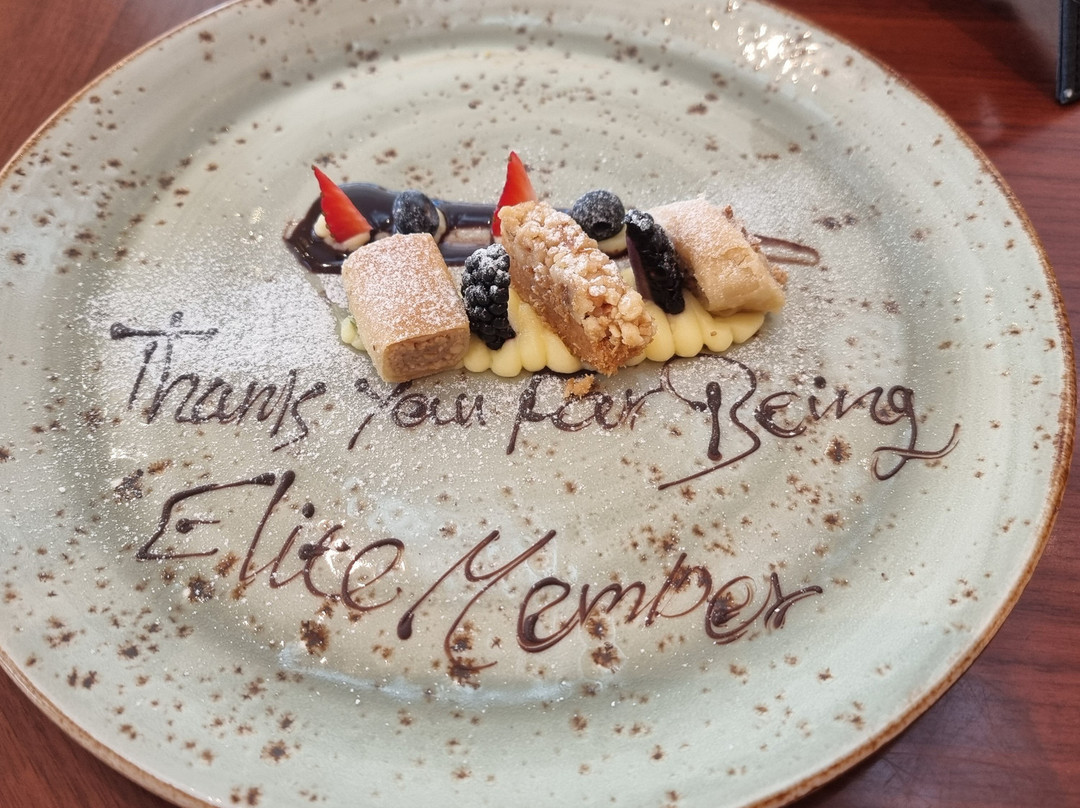 Thank You for Being
Elite Member